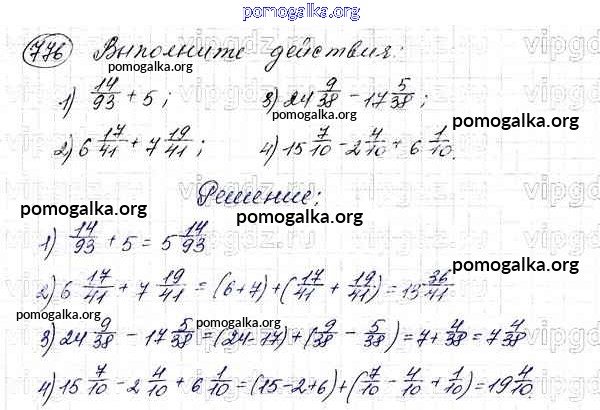 pomogalka.org
776 Выполните действия:
pomogalka.org
1) 14/93 + 5; 3) 24 9/38 − 17 5/38;
pomogalka.org
pomogalka.org
2) 6 17/41 + 7 19/41; 4) 15 7/10 − 2 4/10 + 6 1/10.
pomogalka.org
Решение:
pomogalka.org pomogalka.org
1) 14/93 + 5 = 5 14/93
pomogalka.org
2) 6 17/41 + 7 19/41 = (6+7) + (17/41 + 19/41) = 13 36/41
pomogalka.org
3) 24 9/38 − 17 5/38 = (24−17) + (9/38 − 5/38) = 7 + 4/38 = 7 4/38
pomogalka.org pomogalka.org
4) 15 7/10 − 2 4/10 + 6 1/10 = (15−2+6) + (7/10 − 4/10 + 1/10) = 19 4/10.
vipgdz.ru